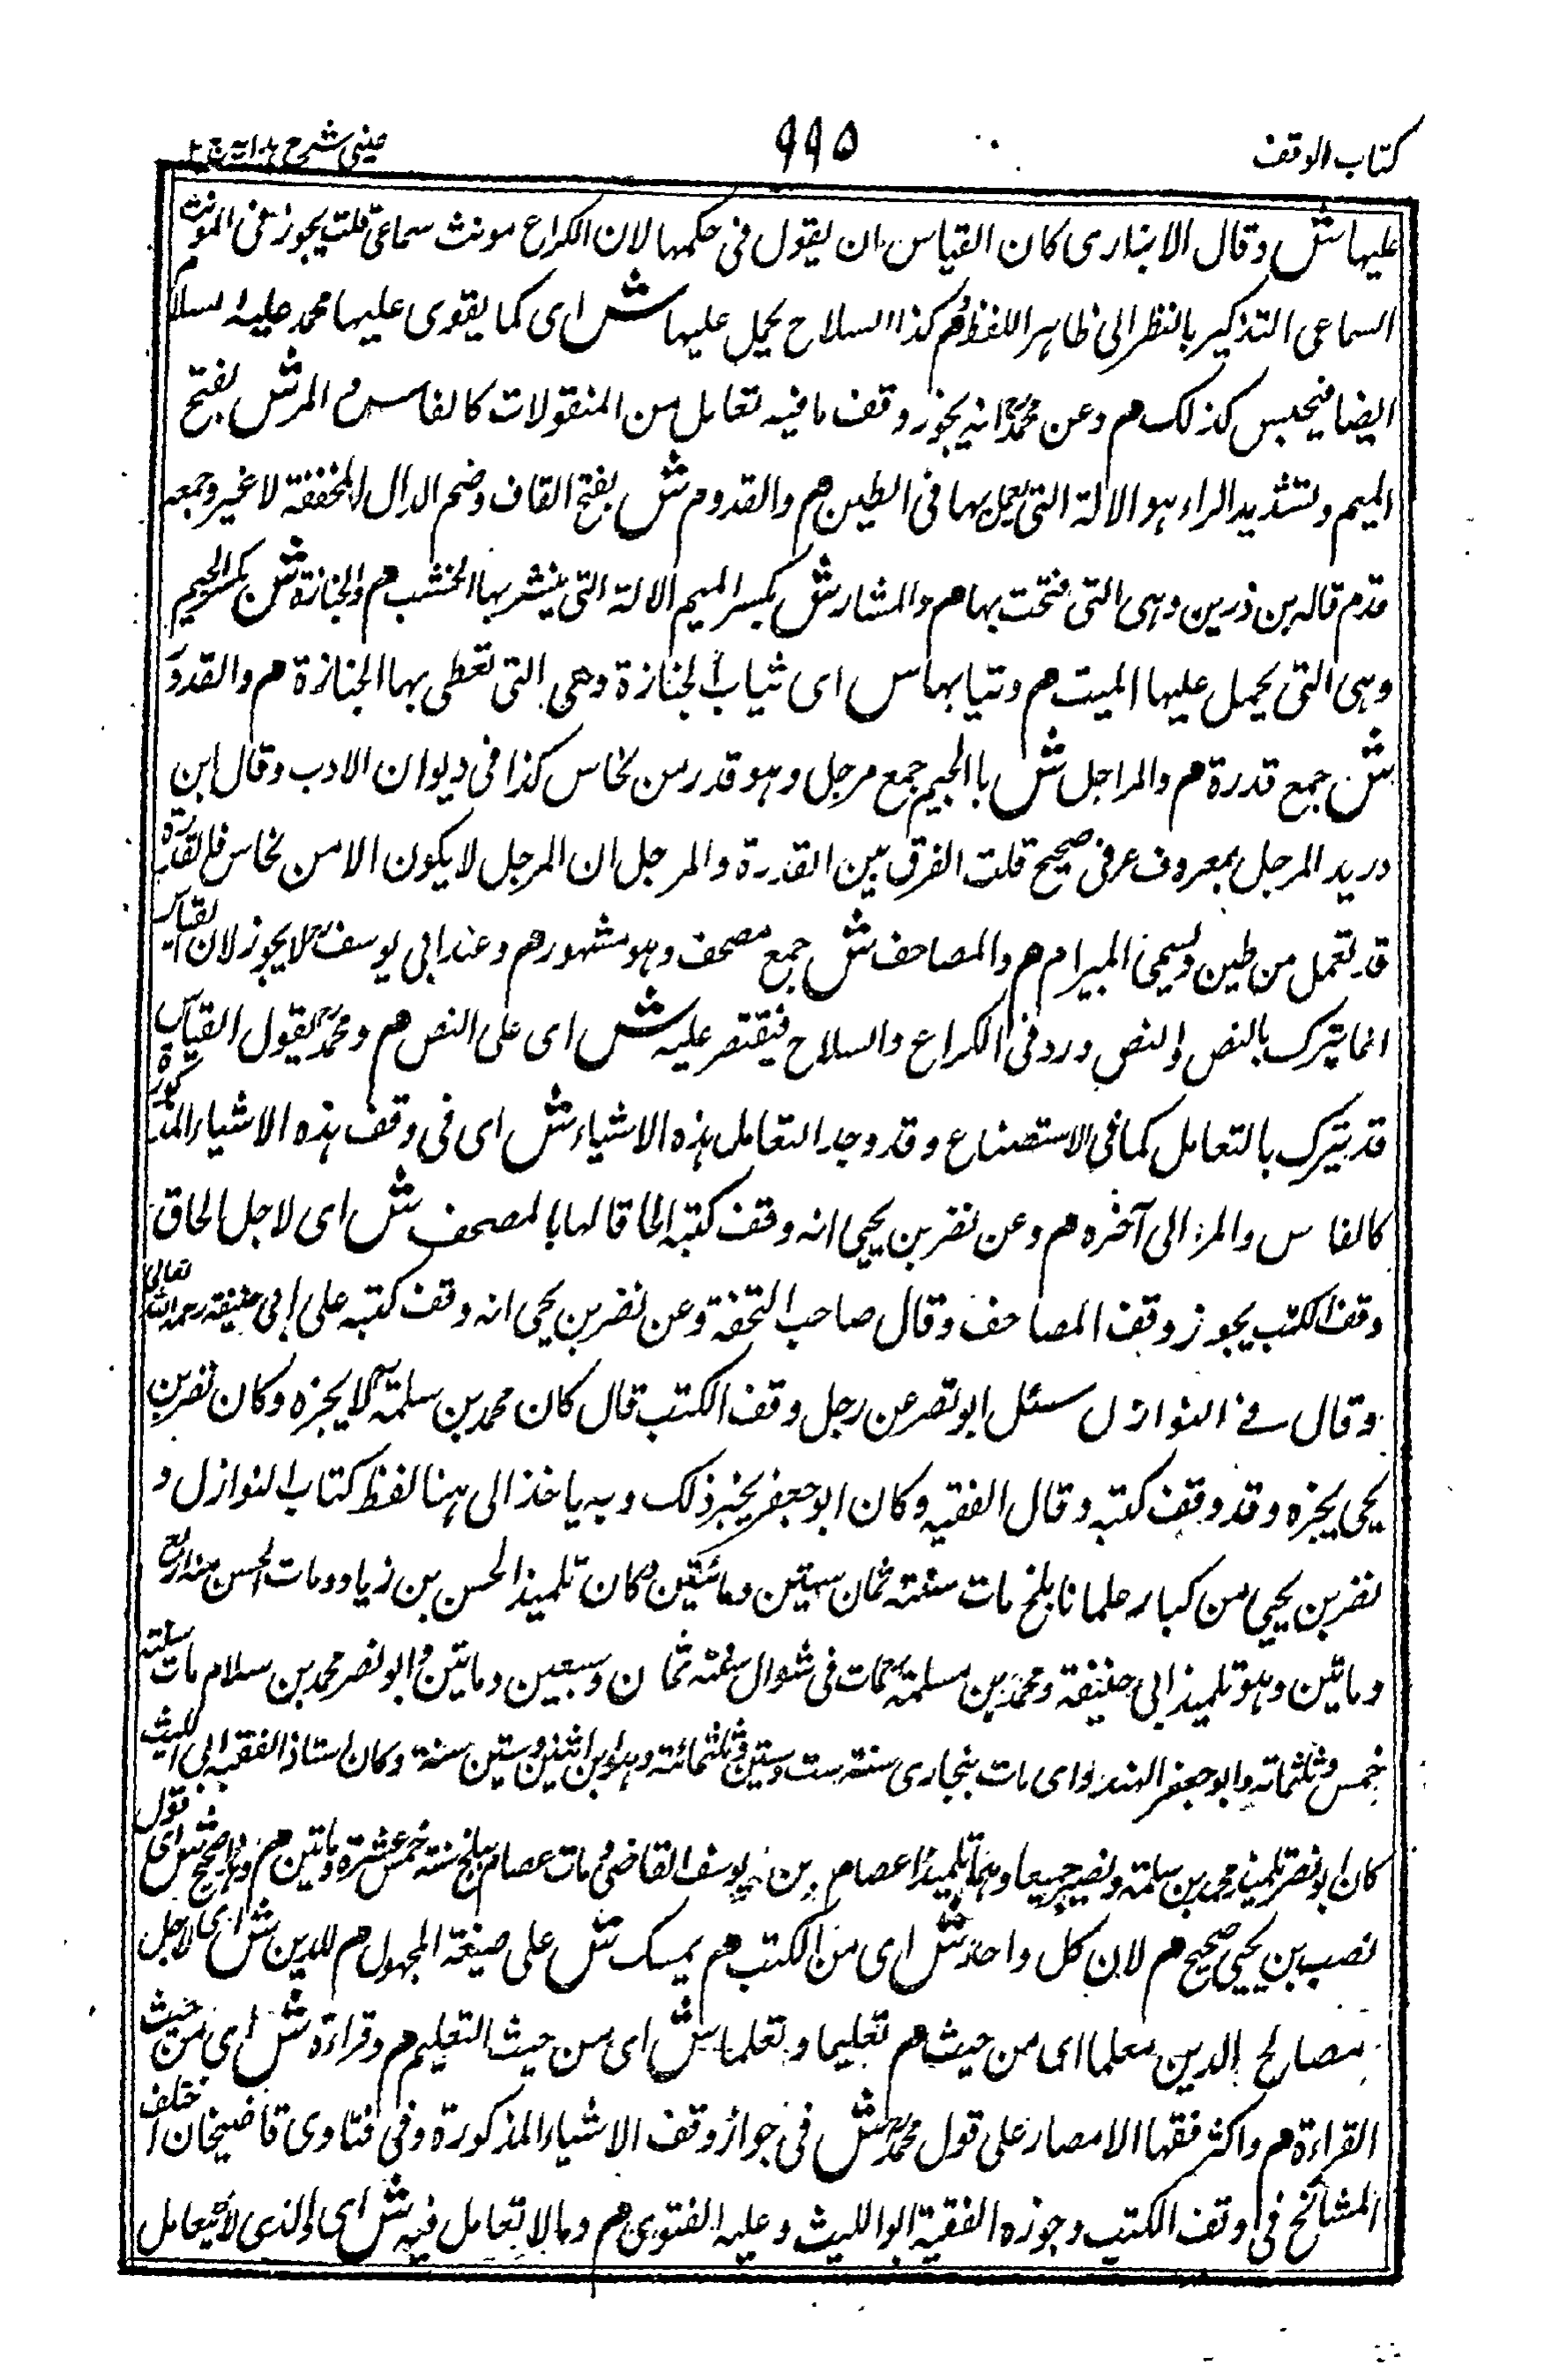 كتاب الوقف
٩٩٥
عينى شرح هداية ج ٢
عليها ش وقال الانبارى كان القياس ان يقول فى حكمها لان الكراع مونث سماعى قلت يجوز فى المونث
السماعى التذكير بالنظر الى ظاهر اللفظ م كذا السلاح يحمل عليها ش اى كما يقوى عليها محمد عليه السلام
ايضا فيحبس كذلك م وعن محمدؒ انه يجوز وقف ما فيه تعامل من المنقولات كالفاس م والمر ش بفتح
الميم وتشديد الراء هو الالة التى يعمل بها فى الطين م والقدوم ش بفتح القاف وضم الدال المخففة لا غير وجمعه
قدم قاله بن ذرين وهى التى فتحت بها م والمشار ش بكسر الميم الالة التى ينشر بها الخشب م والجنازة ش بكسر الجيم
وهى التى يحمل عليها الميت م وثيابها س اى ثياب الجنازة وهى التى تغطى بها الجنازة م والقدور
ش جمع قدرة م والمراجل ش باالجيم جمع مرجل وهو قدر من نحاس كذا فى ديوان الادب وقال ابن
دريد المرجل معروف عرفى صحيح قلت الفرق بين القدرة والمرجل ان المرجل لا يكون الا من نحاس فالقدرة
قد تعمل من طين ويسمى المبيرام م والمصاحف ش جمع مصحف وهو مشهور م وعند ابى يوسفؒ لا يجوز لان القياس
انما يترك بالنص والنص ورد فى الكراع والسلاح فيقتصر عليه ش اى على النص م ومحمدؒ يقول القياس
قد يترك بالتعامل كما فى الاستصناع وقد وجد التعامل هذه الاشياء ش اى فى وقف هذه الاشياء المذكورة
كالفاس والمر الى آخره م وعن نصر بن يحيى انه وقف كتبه الحاقا لها بالمصحف ش اى لاجل الحاق
وقف الكتب يجوز وقف المصاحف وقال صاحب التحفة وعن نصر بن يحيى انه وقف كتبه على ابى حنيفة رحمه الله تعالى
وقال فى النوازل سئل ابو نصر عن رجل وقف الكتب قال كان محمد بن سلمةؒ لا يجزه وكان نصر بن
يحيى يجزه وقد وقف كتبه وقال الفقيه وكان ابو جعفر يجيز ذلك وبه ياخذ الى هنا لفظ كتاب النوازل و
نصر بن يحيى من كبار علمانا بلخ مات سنة ثمان ستين ومائتين وكان تلميذ الحسن بن زياد ومات الحسن سنة اربع
وماتين وهو تلميذ ابى حنيفة ومحمد بن مسلمةؒ مات فى شوال سنة ثمان وسبعين وماتين وابو نصر محمد بن سلام مات سنة
خمس وثلثماته وابو جعفر الهندواى مات ببخارى سنة ست وستين وثلثمائة وهو ابن اثنين وستين سنة وكان استاذ الفقيه ابى الليث
كان ابو نصر تلميذ محمد بن سلمة ونصير جميعا وهما تلميذا عصام بن يوسف القاضى ومات عصام ببلخ سنة خمس عشرة وماتين م وهو صحيح ش اى قول
نصب بن يحيى صحيح م لان كل واحد ش اى من الكتب م يمسك ش على صيغة المجهول م للدين ش اى لاجل
مصالح الدين معلما اى من حيث م تعليما وتعلما ش اى من حيث التعليم م وقراءة ش اى من حيث
القراءة م واكثر فقها الامصار على قول محمدؒ ش فى جواز وقف الاشياء المذكورة وفى فتاوى قاضيخان اختلف
المشائخ فى وقف الكتب وجوزه الفقيه ابو الليث وعليه الفتوى م وما لا تعامل فيه ش اى والذى لا يتعامل